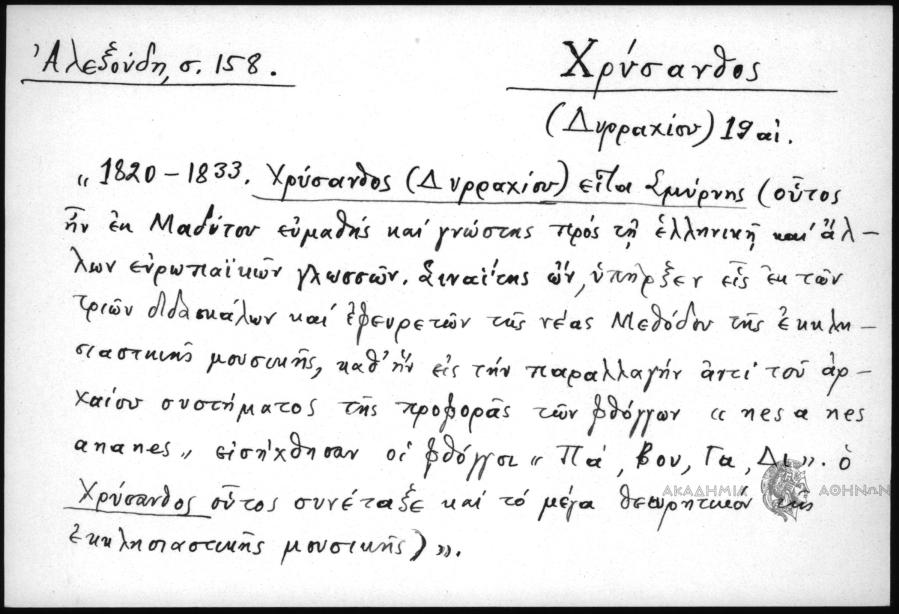 Ἀλεξούδη, σ. 158.
Χρύσανθος
(Δυρραχίου) 19 αἰ.
„ 1820 – 1833. Χρύσανθος (Δυρραχίου) εἶτα Σμύρνης (οὗτος
ἦν ἐκ Μαδύτου εὐμαθής καί γνώστης πρός τῇ ἑλληνικῇ καί ἄλ-
λων εὐρωπαϊκῶν γλωσσῶν. Σιναΐτης ὤν, ὑπῆρξεν εἷς ἐκ τῶν
τριῶν διδασκάλων καί ἐφευρετῶν τῆς νέας Μεθόδου τῆς ἐκκλη-
σιαστικῆς μουσικῆς, καθ' ἥν εἰς τήν παραλλαγήν ἀντί τοῦ ἀρ-
χαίου συστήματος τῆς προφορᾶς τῶν φθόγγων « nes a nes
ananes „ εἰσήχθησαν οἱ φθόγγοι « Πά, Βου, Γα, Δι ». ὁ
Χρύσανθος οὗτος συνέταξε καί τό μέγα θεωρητικόν τῆς
ἐκκλησιαστικῆς μουσικῆς) ».
ΑΚΑΔΗΜΙΑ ΑΘΗΝΩΝ